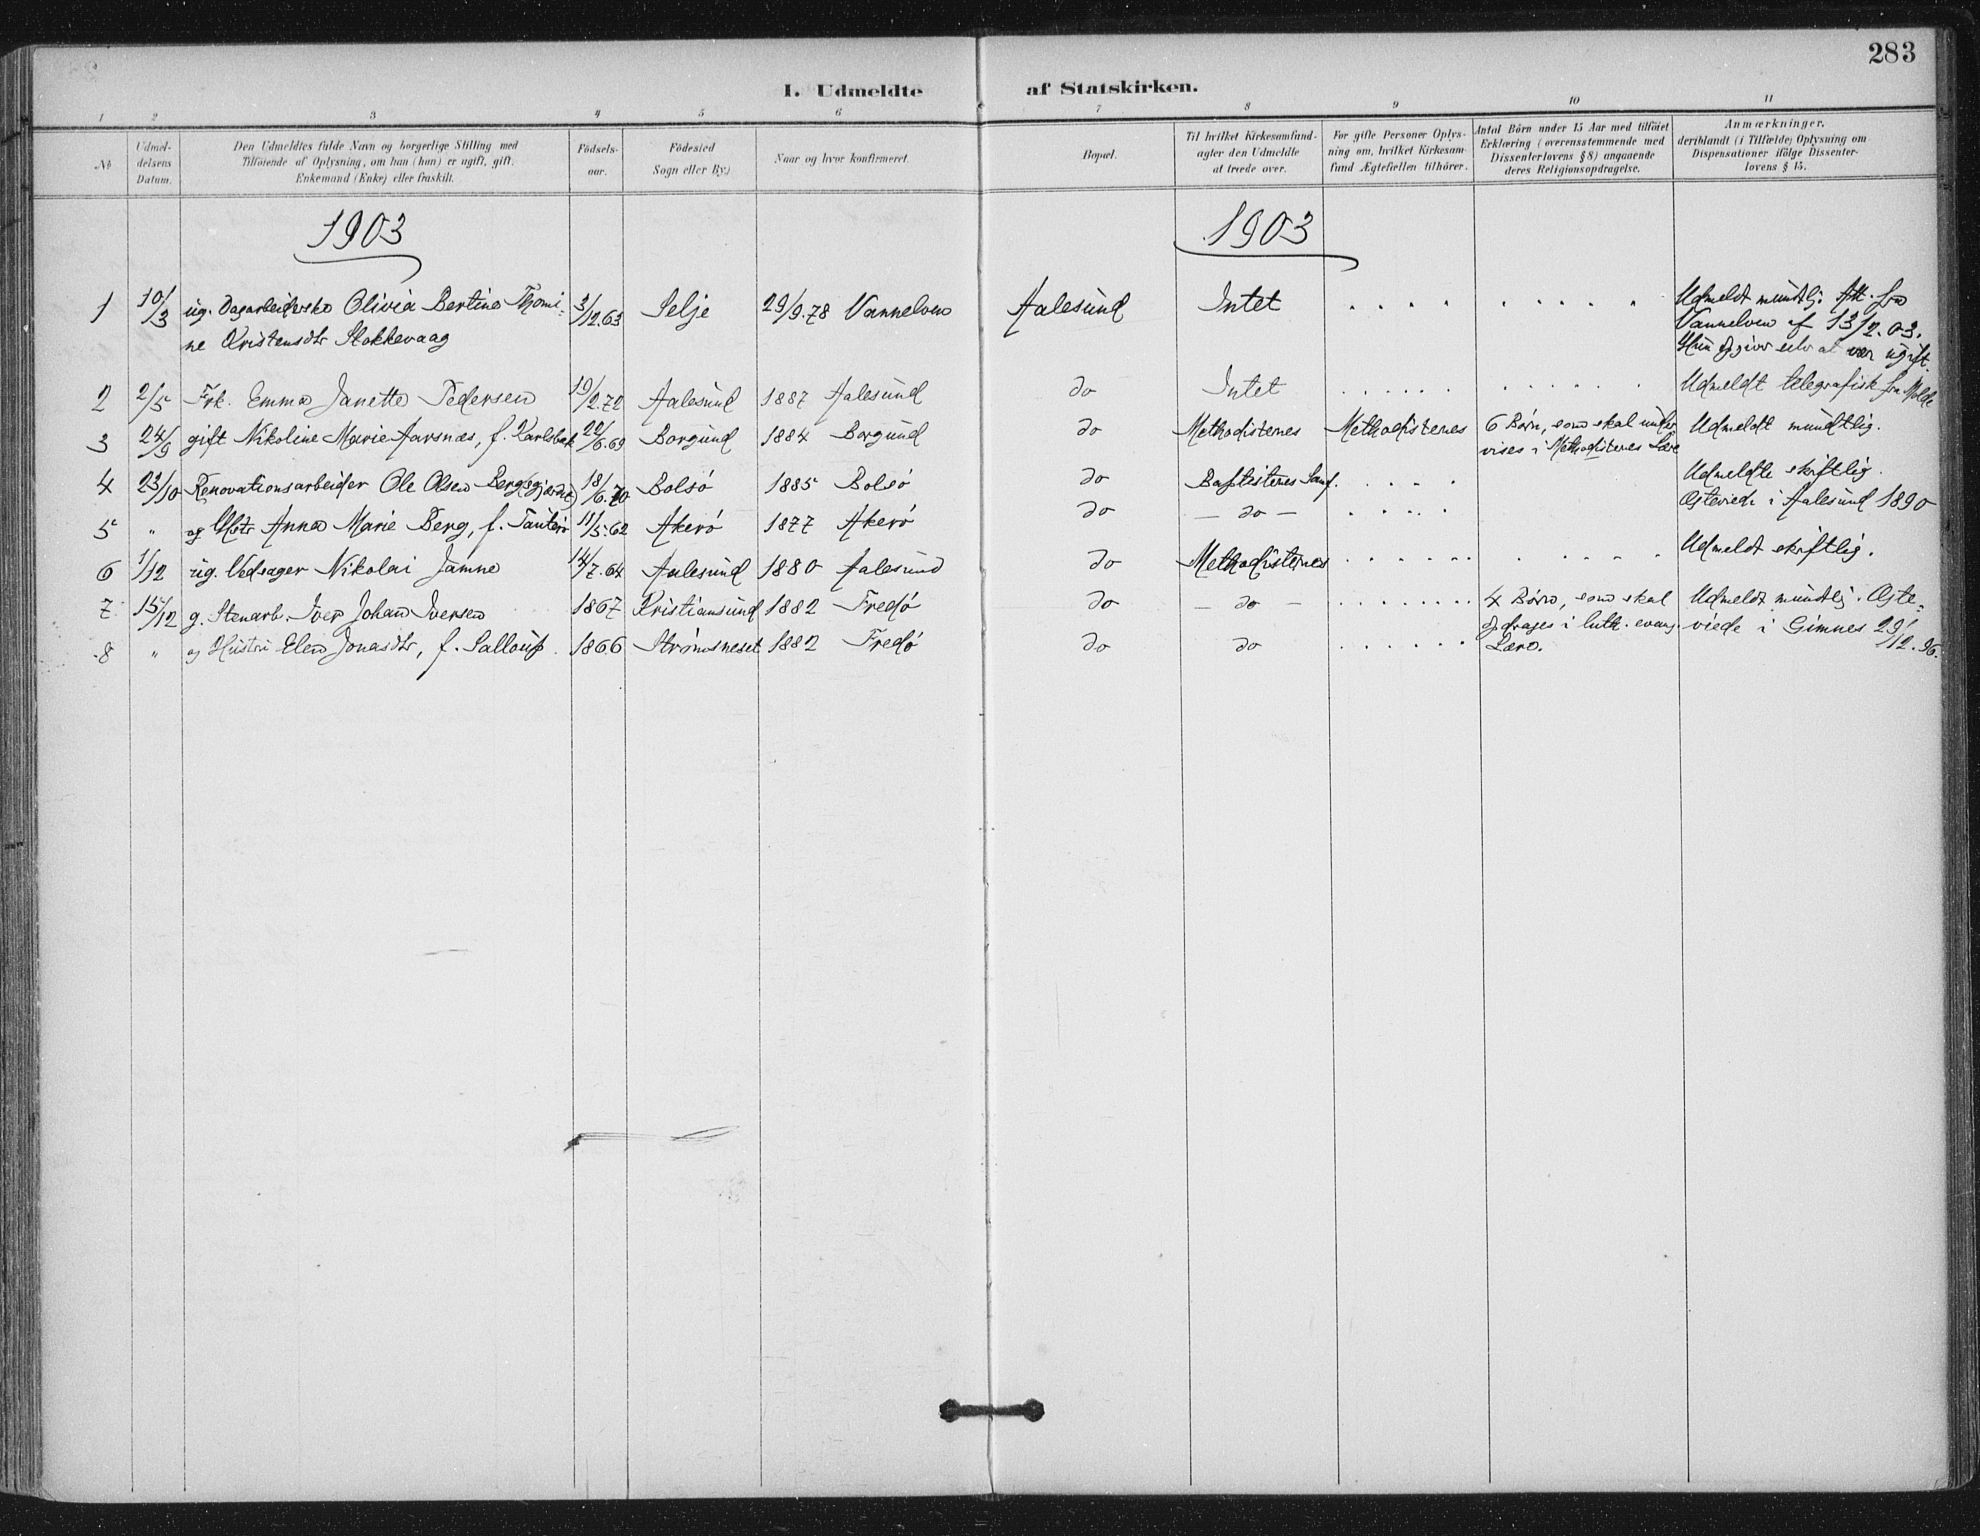 283
I. Udmeldte af Statskirken.
1 2 3 4 5 6 7 8 9 10 11
No
Udmel-
delsens
Datum.
Den Udmeldtes fulde Navn og borgerlige Stilling med
Tilföiende af Oplysning, om han (hun) er ugift, gift,
Enkemand (Enke) eller fraskilt.
Födsels-
aar.
Födested
Sogn eller By.)
Naar og hvor konfirmeret.
Bopæl.
Til hvilket Kirkesamfund-
agter den Udmeldte
at træde over.
For gifte Personer Oplys-
ning om, hvilket Kirkesam-
fund Ægtefællen tilhörer.
Antal Börn under 15 Aar med tilföiet
Erklæring (overensstemmende med
Dissenterlovens § 8) angaaende
deres Religionsopdragelse.
Anmærkninger,
deriblandt (i Tilfælde) Oplysning om
Dispensationer ifölge Dissenter-
lovens § 15.
1903 1903
1 10/3 ug. Dagarbeiderske Olivia Bertine Thomi- 3/12.63 Selje 29/9.78 Vannelven Aalesund Intet Udmeldt mundtlig. Att. fra
ne Kristensdtr Stokkevaag Vannelven af 13/2.03.
Hun opgiver selv at vær ugift.
2 2/5 Frk. Emma Janette Pedersen 19/2.72 Aalesund 1887 Aalesund do Intet Udmeldt telegrafisk fra Molde
3 24/9 gift Nikoline Marie Aarsnæs, f. Karlsbak 22/6.69 Borgund 1884 Borgund do Methodisternes Methodisternes 6 Børn, som skal under Udmeldt mundtlig.
vises i Methodisternes Lære
4 23/10 Renovationsarbeider Ole Olsen Berg 18/6.70 Bolsö 1885 Bolsö do Baptisternes Samf. Udmeldte skriftlig.
Ægteviede i Aalesund 1890
5 " og Hstr Anna Marie Berg, f. 11/5.62 Akerö 1877 Akerö do — do —
6 1/12 ug. Vedsager Nikolai Jamne 14/7.64 Aalesund 1880 Aalesund do Methodisternes Udmeldt skriftlig.
7 15/12 g. Stenarb. Iver Johan Iversen 1867 Kristiansund 1882 Fredö do — do — 4 Børn, som skal Udmeldt mundtlig. Ægte-
opdrages i luth. evang. viede i Gimnes 29/12.96.
8 " og Hustru Elen Jonasdtr, f. 1866 Strömsneset 1882 Fredö do do Lære.